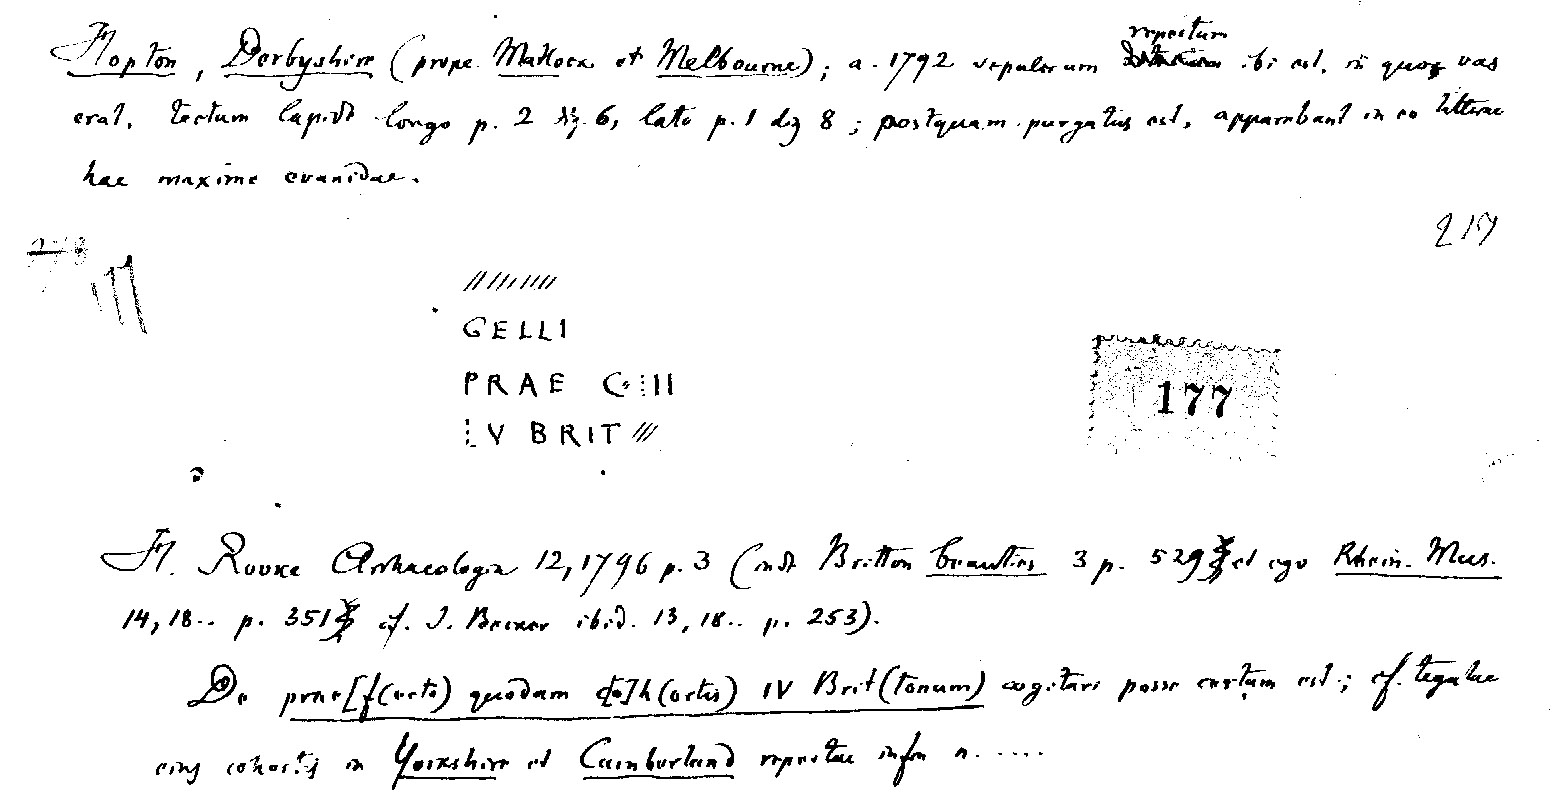 Hopton, Derbyshire (prope Matlock et Melbourne); a. 1792 sepulcrum repertum ibi est, in quo vas
erat, tectum lapide longo p. 2 dig. 6, lato p. 1 dig 8; postquam purgatus est, apparebant in eo litterae
hae maxime evanidae.
278 217
177
GELLI
PRAE C III
177
LV BRIT
H. Rooke Archaeologia 12, 1796 p. 3 (inde Britton beauties 3 p. 529 et ego Rhein. Mus.
14, 18.. p. 351 cf. J. Becker ibid. 13, 18.. p. 253).
De prae[f(ecto) quodam co]h(ortis) IV Brit(tonum) cogitari posse certum est; cf. tegulae
eius cohortis in Yorkshire et Cumberland repertae infra n. .....